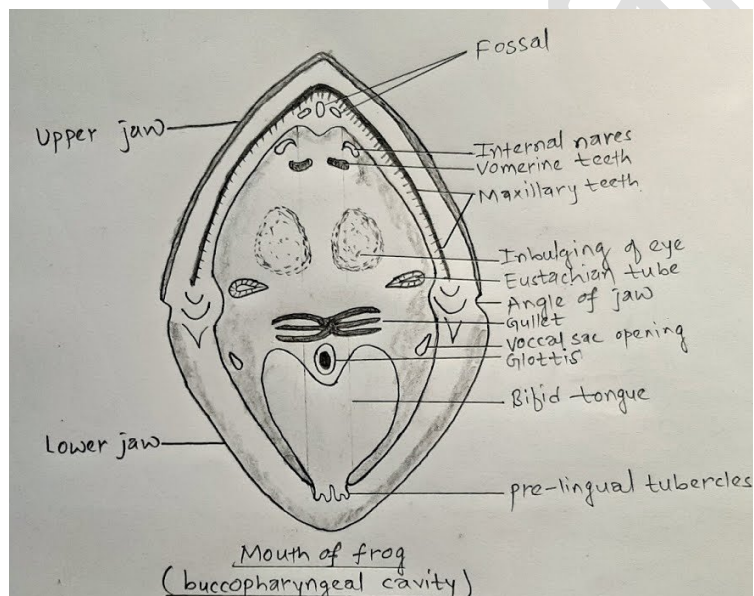 Fossal
Upper jaw
Internal nares
Vomerine teeth
Maxillary teeth
Inbulging of eye
Eustachian tube
Angle of jaw
Gullet
Voccal sac opening
Glottis
Bifid tongue
Lower jaw
pre-lingual tubercles
Mouth of frog
(buccopharyngeal cavity)